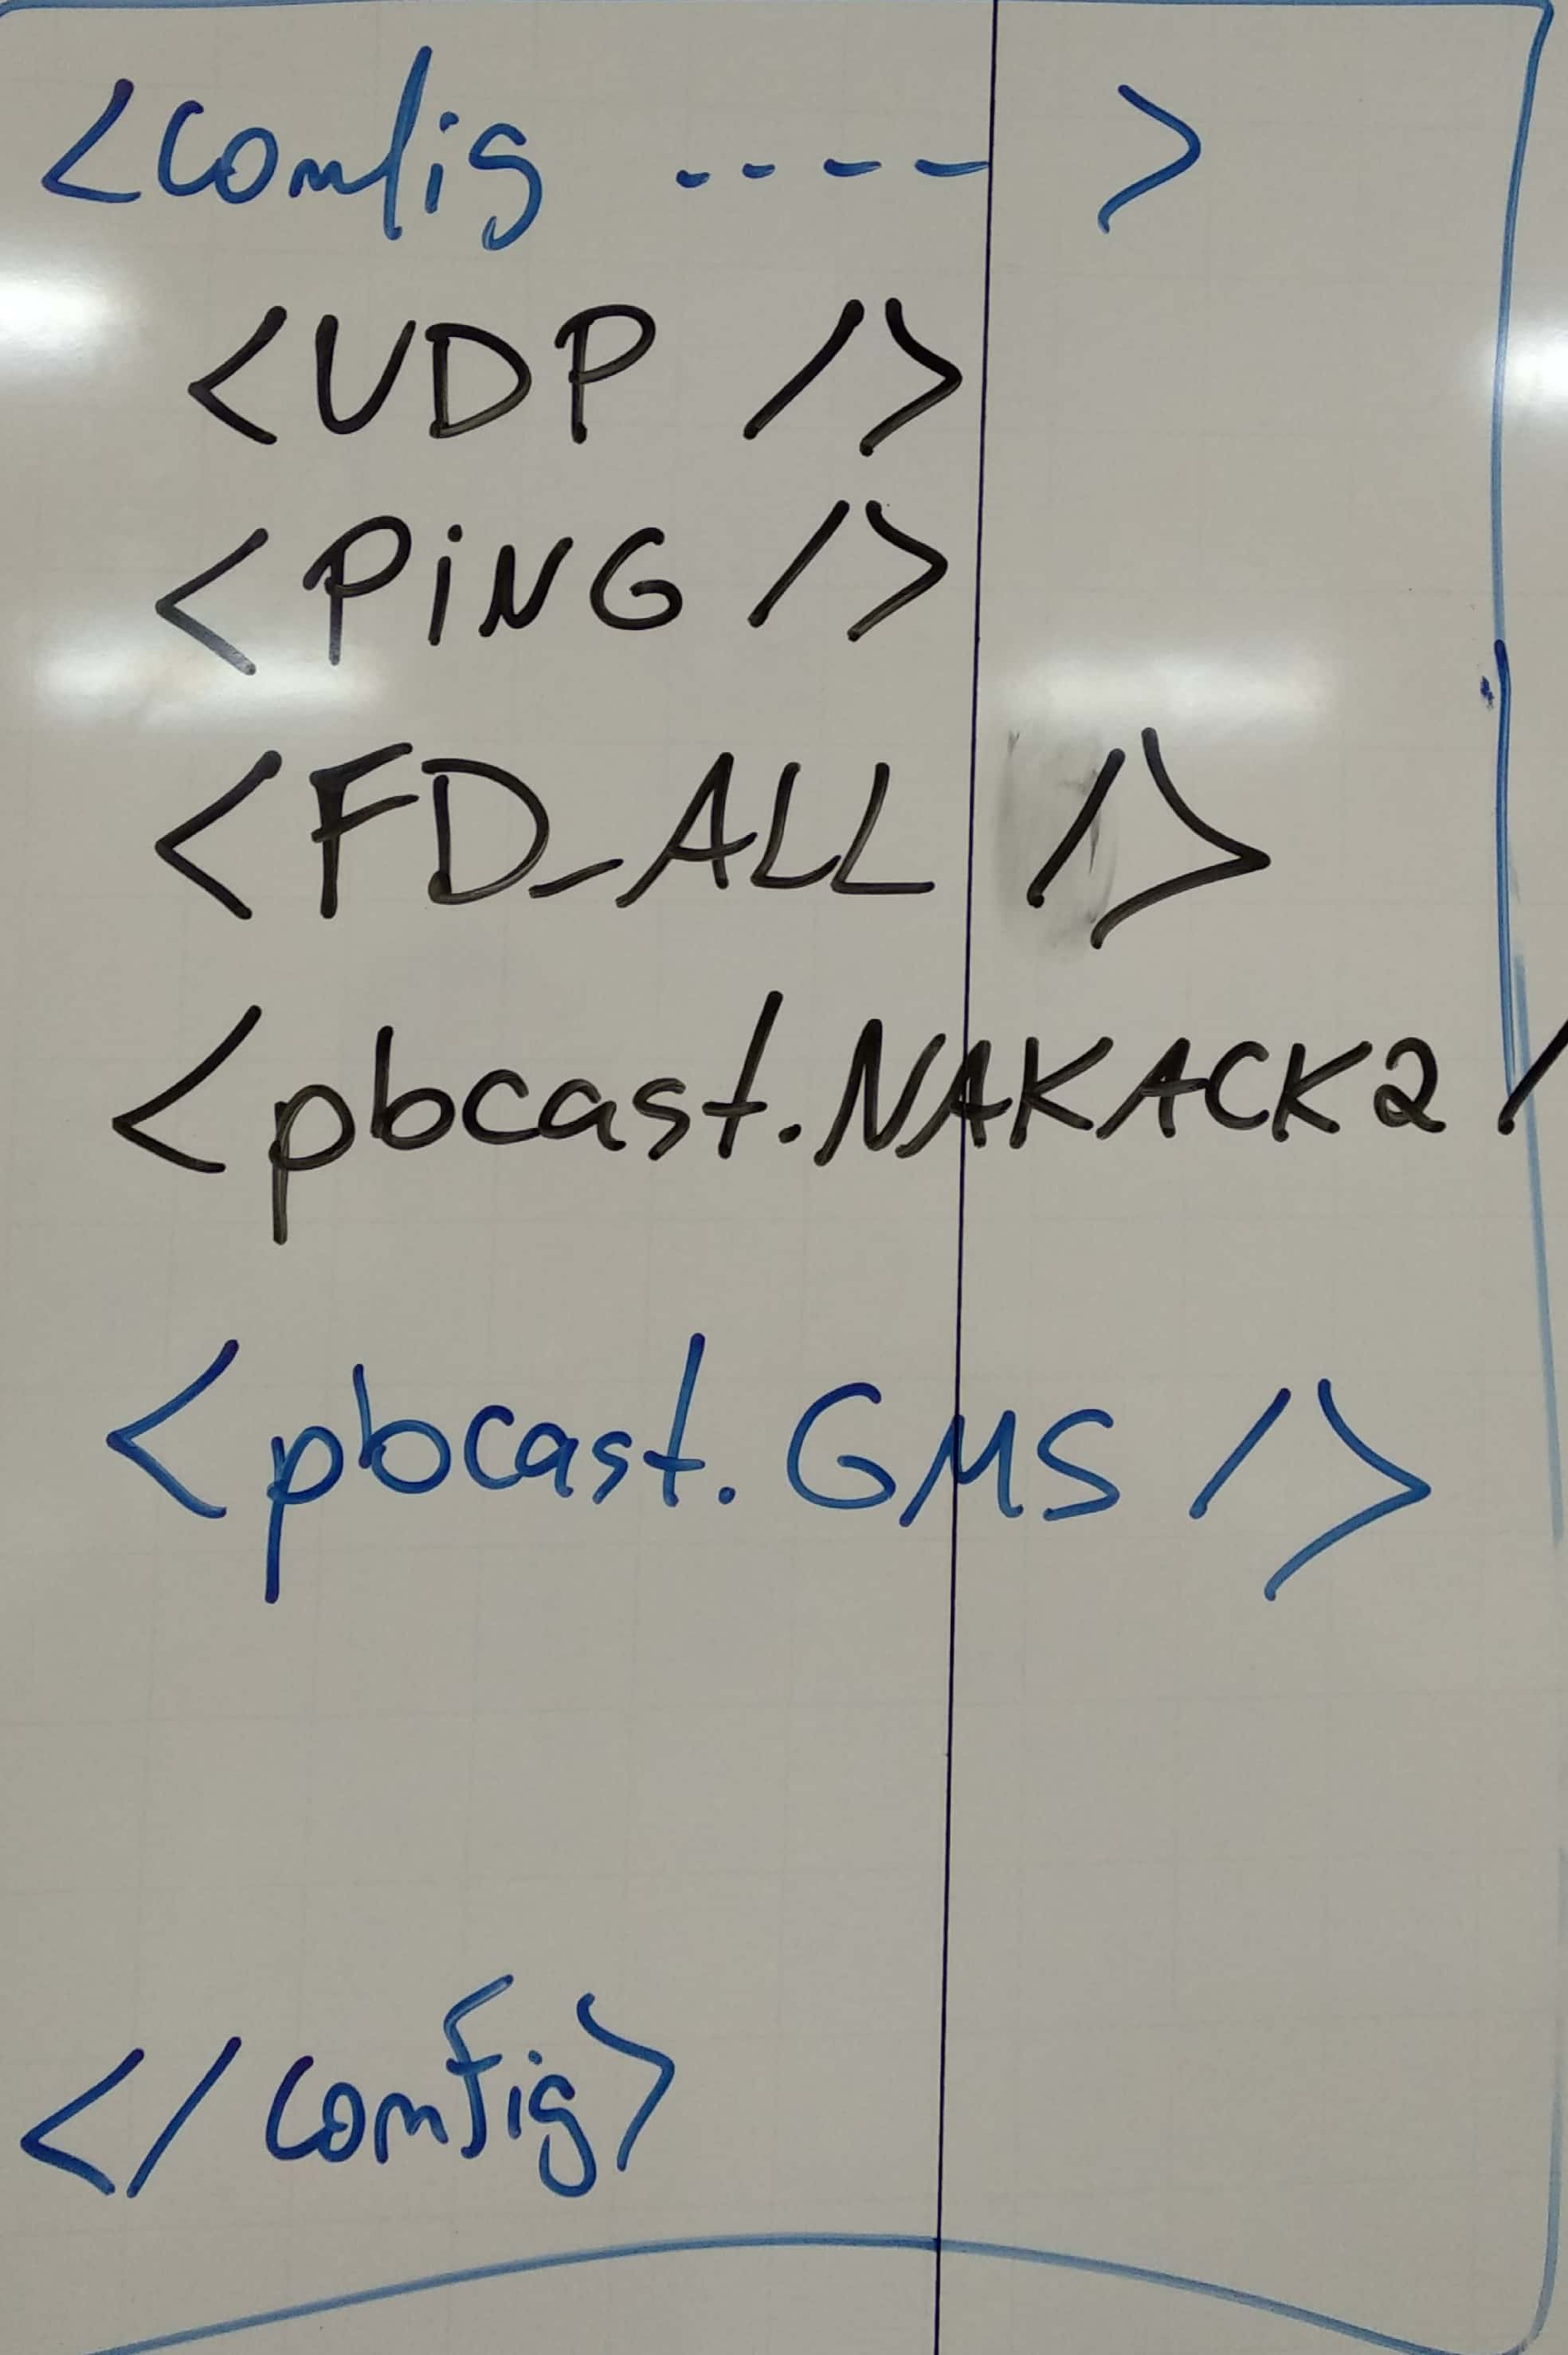 <config ---- >
<UDP />
<PiNG />
<FD_ALL />
<pbcast.NAKACK2 /
<pbcast.GMS />
</config>